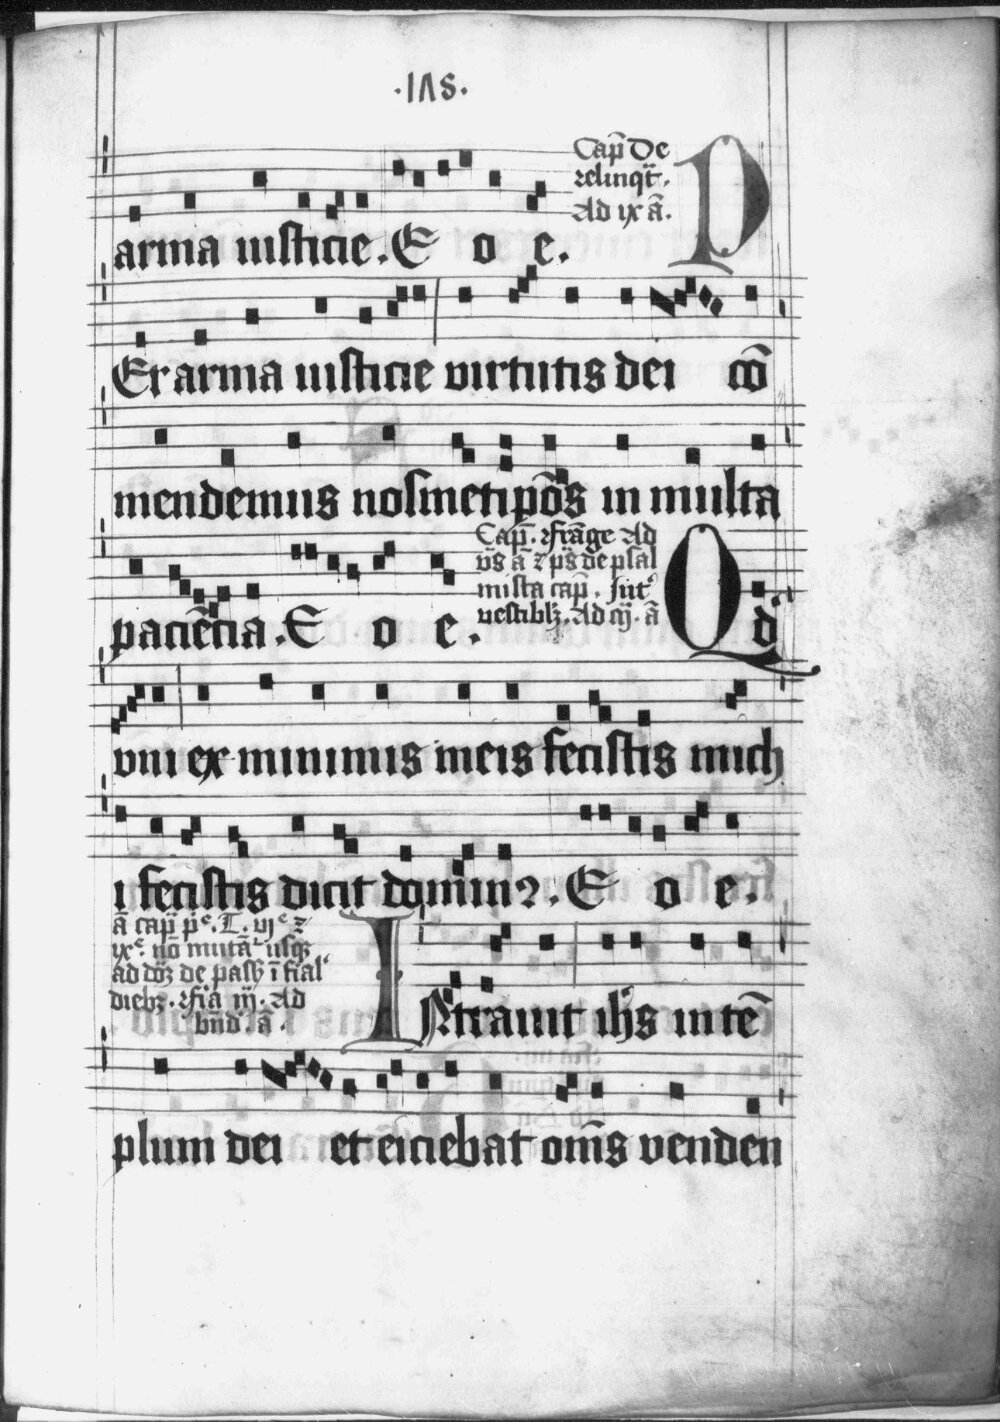 ·IΛS·
Cap̄ De
relinqt̄.
Ad ix ā.
P
arma iusticie. E o e.
Er arma iusticie virtutis dei cō
mendemus nosmetip̄os in multa
Cap̄. frāge Ad
v̄s ā ⁊ p̄s de psal
mista cap̄. Sūt
vestibꝫ. Ad cij. ā
pacīēcia. E o e.
Qd
vni ex minimis meis fecistis mich
i fecistis dicit dominꝯ. E o e.
ā cap̄
ix. nō mutāt usqꝫ
ad dōꝫ de pasß ī fial
diebꝫ. fia iij. Ad
bn̄d. ā.
INtrauit ihs in tē
plum dei et eiciebat om̄s venden